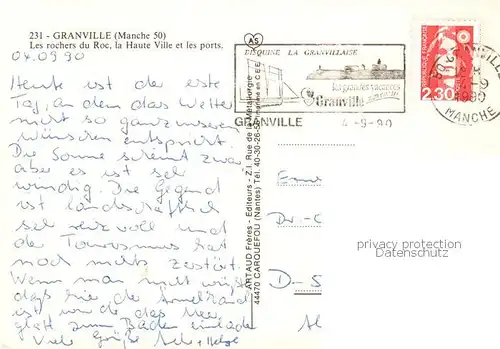 231 - GRANVILLE (Manche 50)
Les rochers du Roc, la Haute Ville et les ports.
04.09.90
Heute ist der erste
Tag, an dem das Wetter
nicht so ganz unseren
wünschen entspricht.
Die Sonne scheint zwar
aber es ist sehr
windig. Die Gegend
ist landschaftlich
sehr reizvoll und
der Tourismus hat
noch nichts zerstört.
Wenn man nicht wüßt
daß hie der Ärmelkanal
ist würde das Meer
glatt zum Baden einlade
Viele Grüße + Helga
ARTAUD Frères - Editeurs - Z.I. Rue de la Métallurgie
44470 CARQUEFOU (Nantes) Tél. 40-30-26-50 Imprimé en CEE
AS
DISQUINE LA GRANVILLAISE
les grandes vacances
Granville
GRANVILLE
4-9-90
2.30
GRANVILLE
1990
MANCHE
Dr.-
D-S
persönlicher
Datenschutz